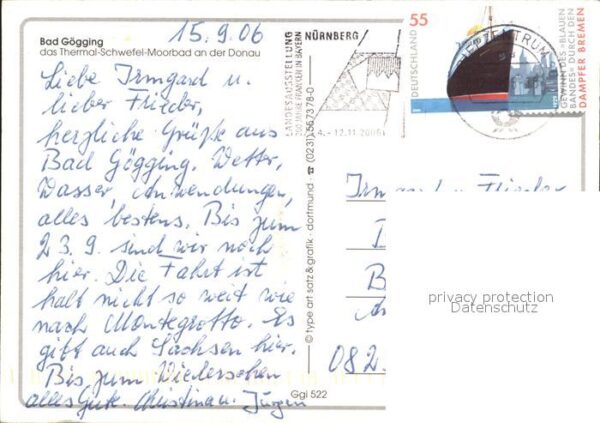 15.9.06
Bad Gögging
das Thermal-Schwefel-Moorbad an der Donau
Liebe Irmgard u.
lieber Frieder,
herzliche Grüße aus
Bad Gögging. Wetter,
Wasser Anwendungen,
alles bestens. Bis zum
23.9. sind wir noch
hier. Die Fahrt ist
halt nicht so weit wie
nach Montegrotto. Es
gibt auch Sachsen hier.
Bis zum Wiedersehen
alles Gute. Christina u. Jürgen
© type art satz & grafik · dortmund · ☎ (0231) 56 73 78-0
Ggi 522
LANDESAUSSTELLUNG
FRANKEN IN BAYERN
NÜRNBERG
4. - 12.11.2006
55
DEUTSCHLAND
GEWINN DES »BLAUEN
BANDES« DURCH DEN
DAMPFER BREMEN
1929
Irmgard u. Frieder
B
082
privacy protection
Datenschutz